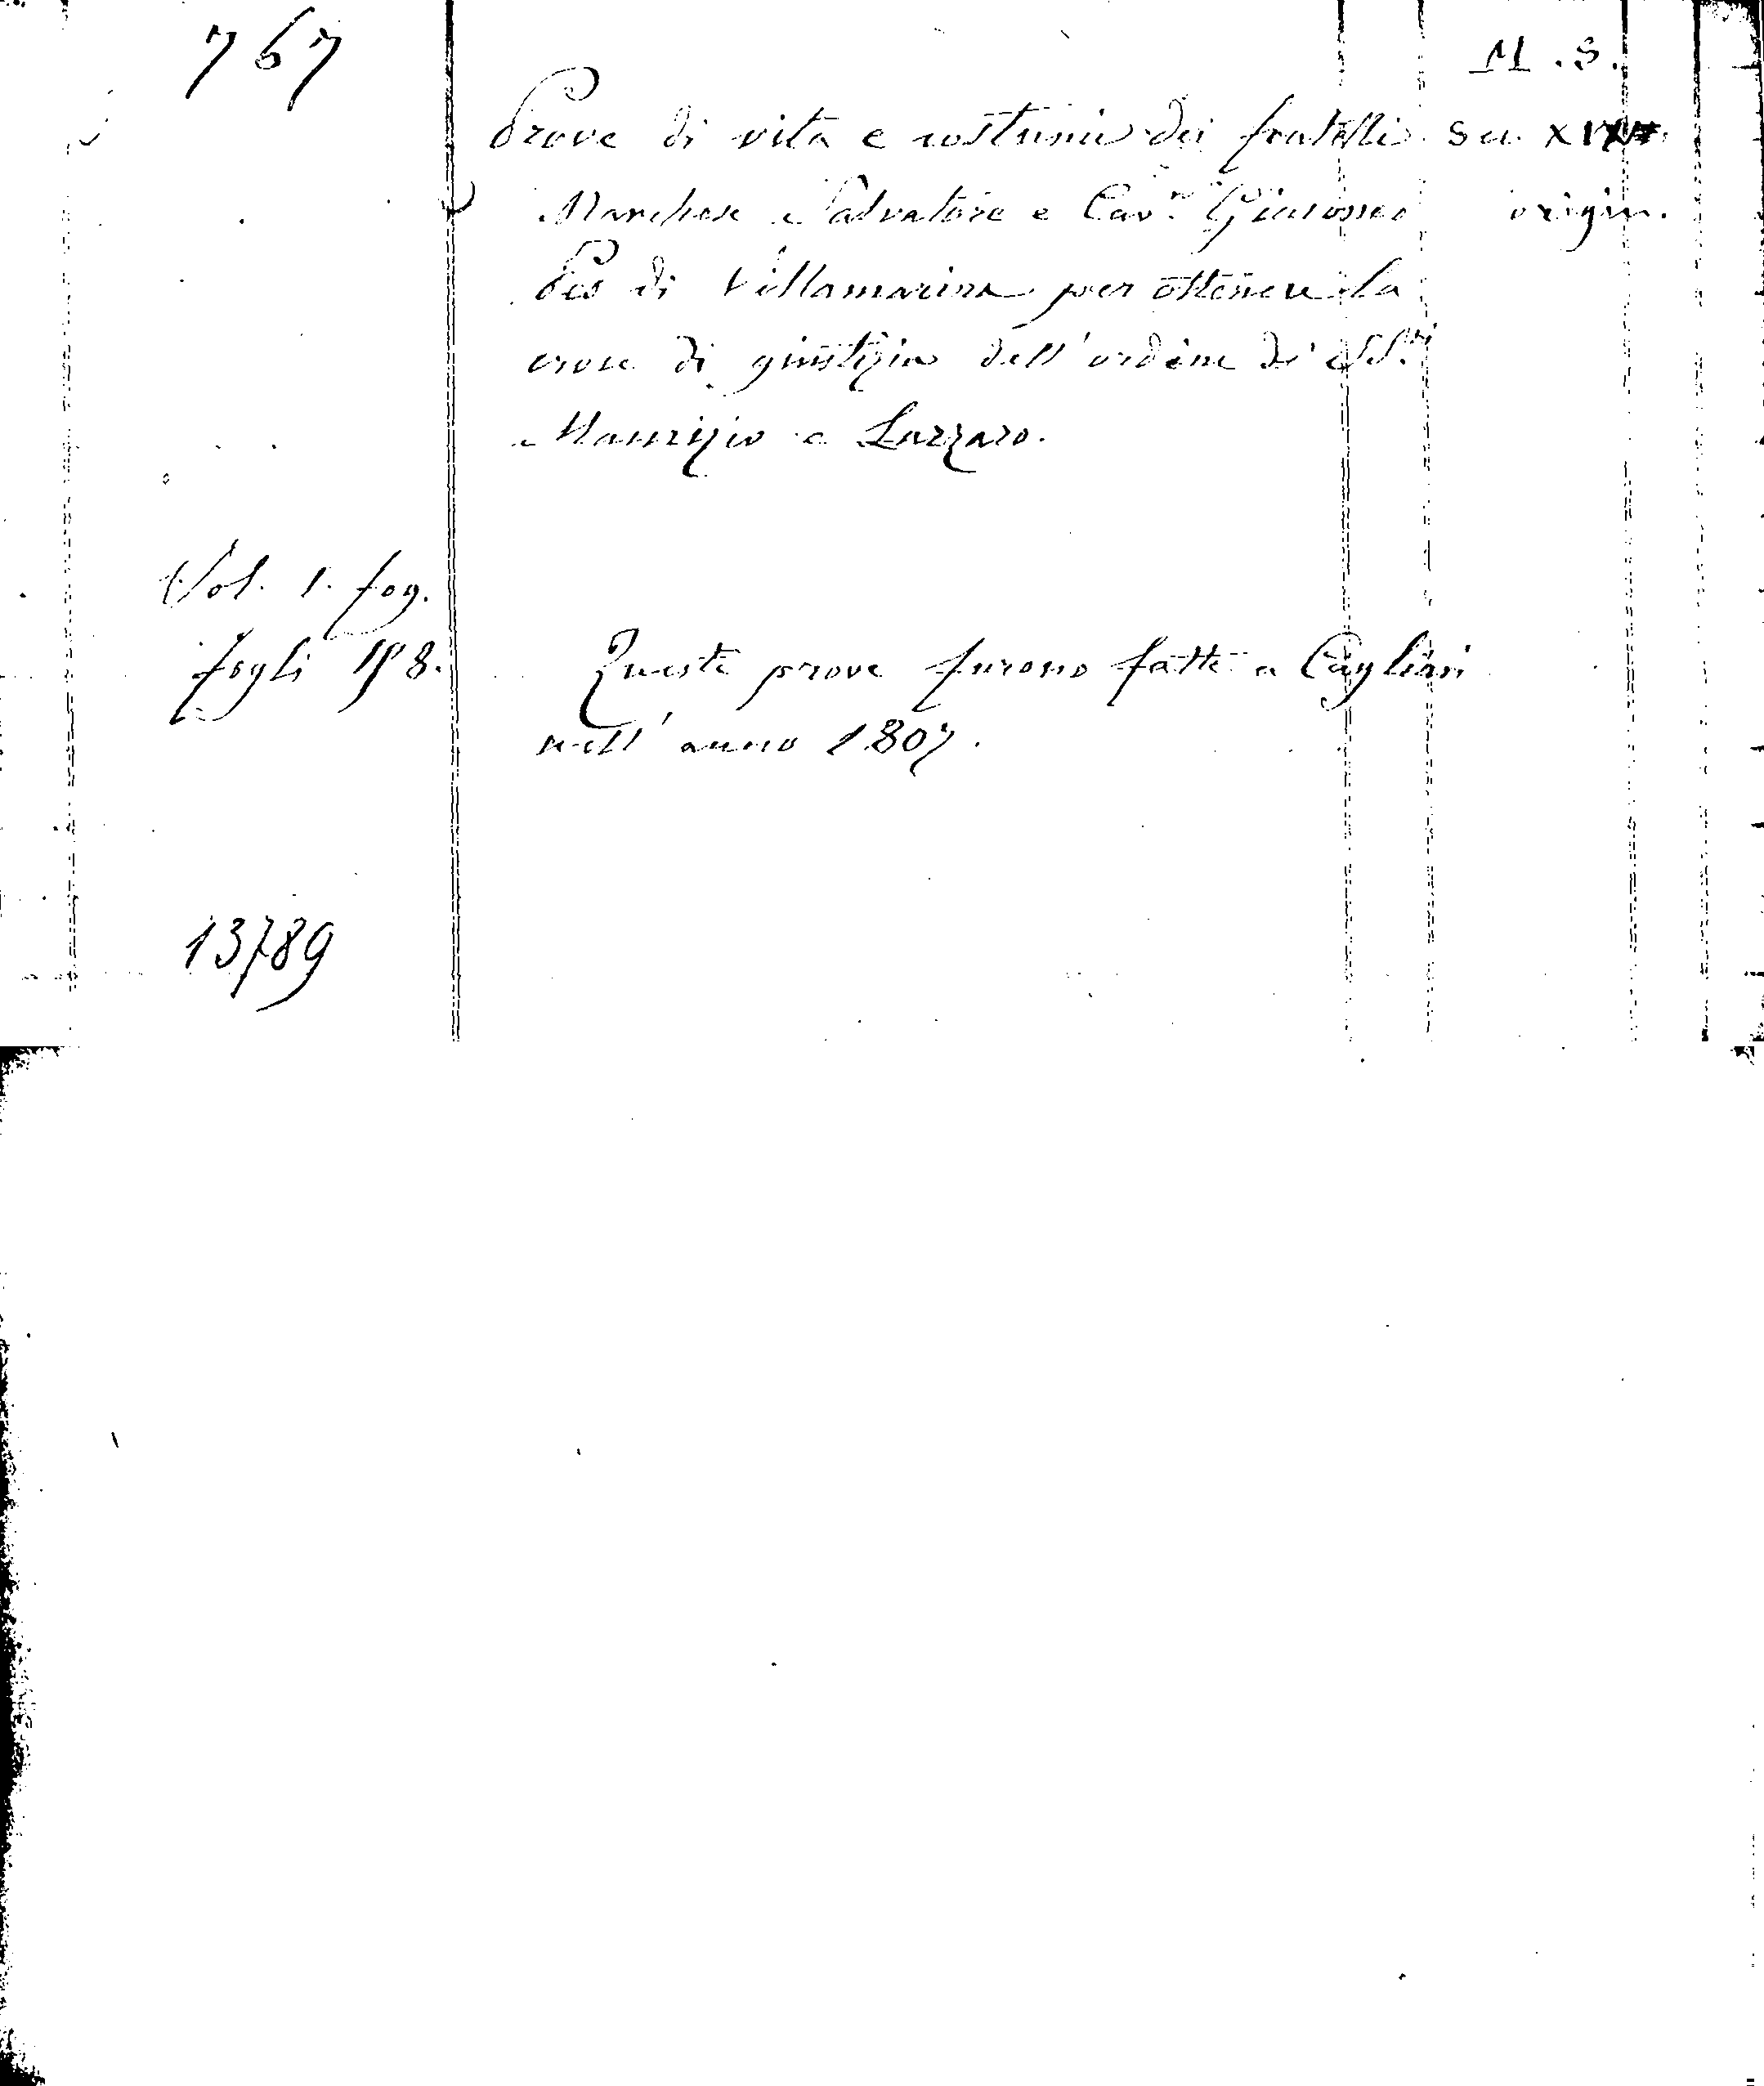 767
M. S.
Prove di vita e costumi dei fratelli
Marchese Salvatore e Cav.r Giacomo
Pes di Villamarina per ottenere la
croce di giustizia dell'ordine de' SS.ti
Maurizio e Lazzaro.
sec. XIX
origin.
Vol. 1. fog.
fogli 198.
Queste prove furono fatte a Cagliari
nell'anno 1807.
13789